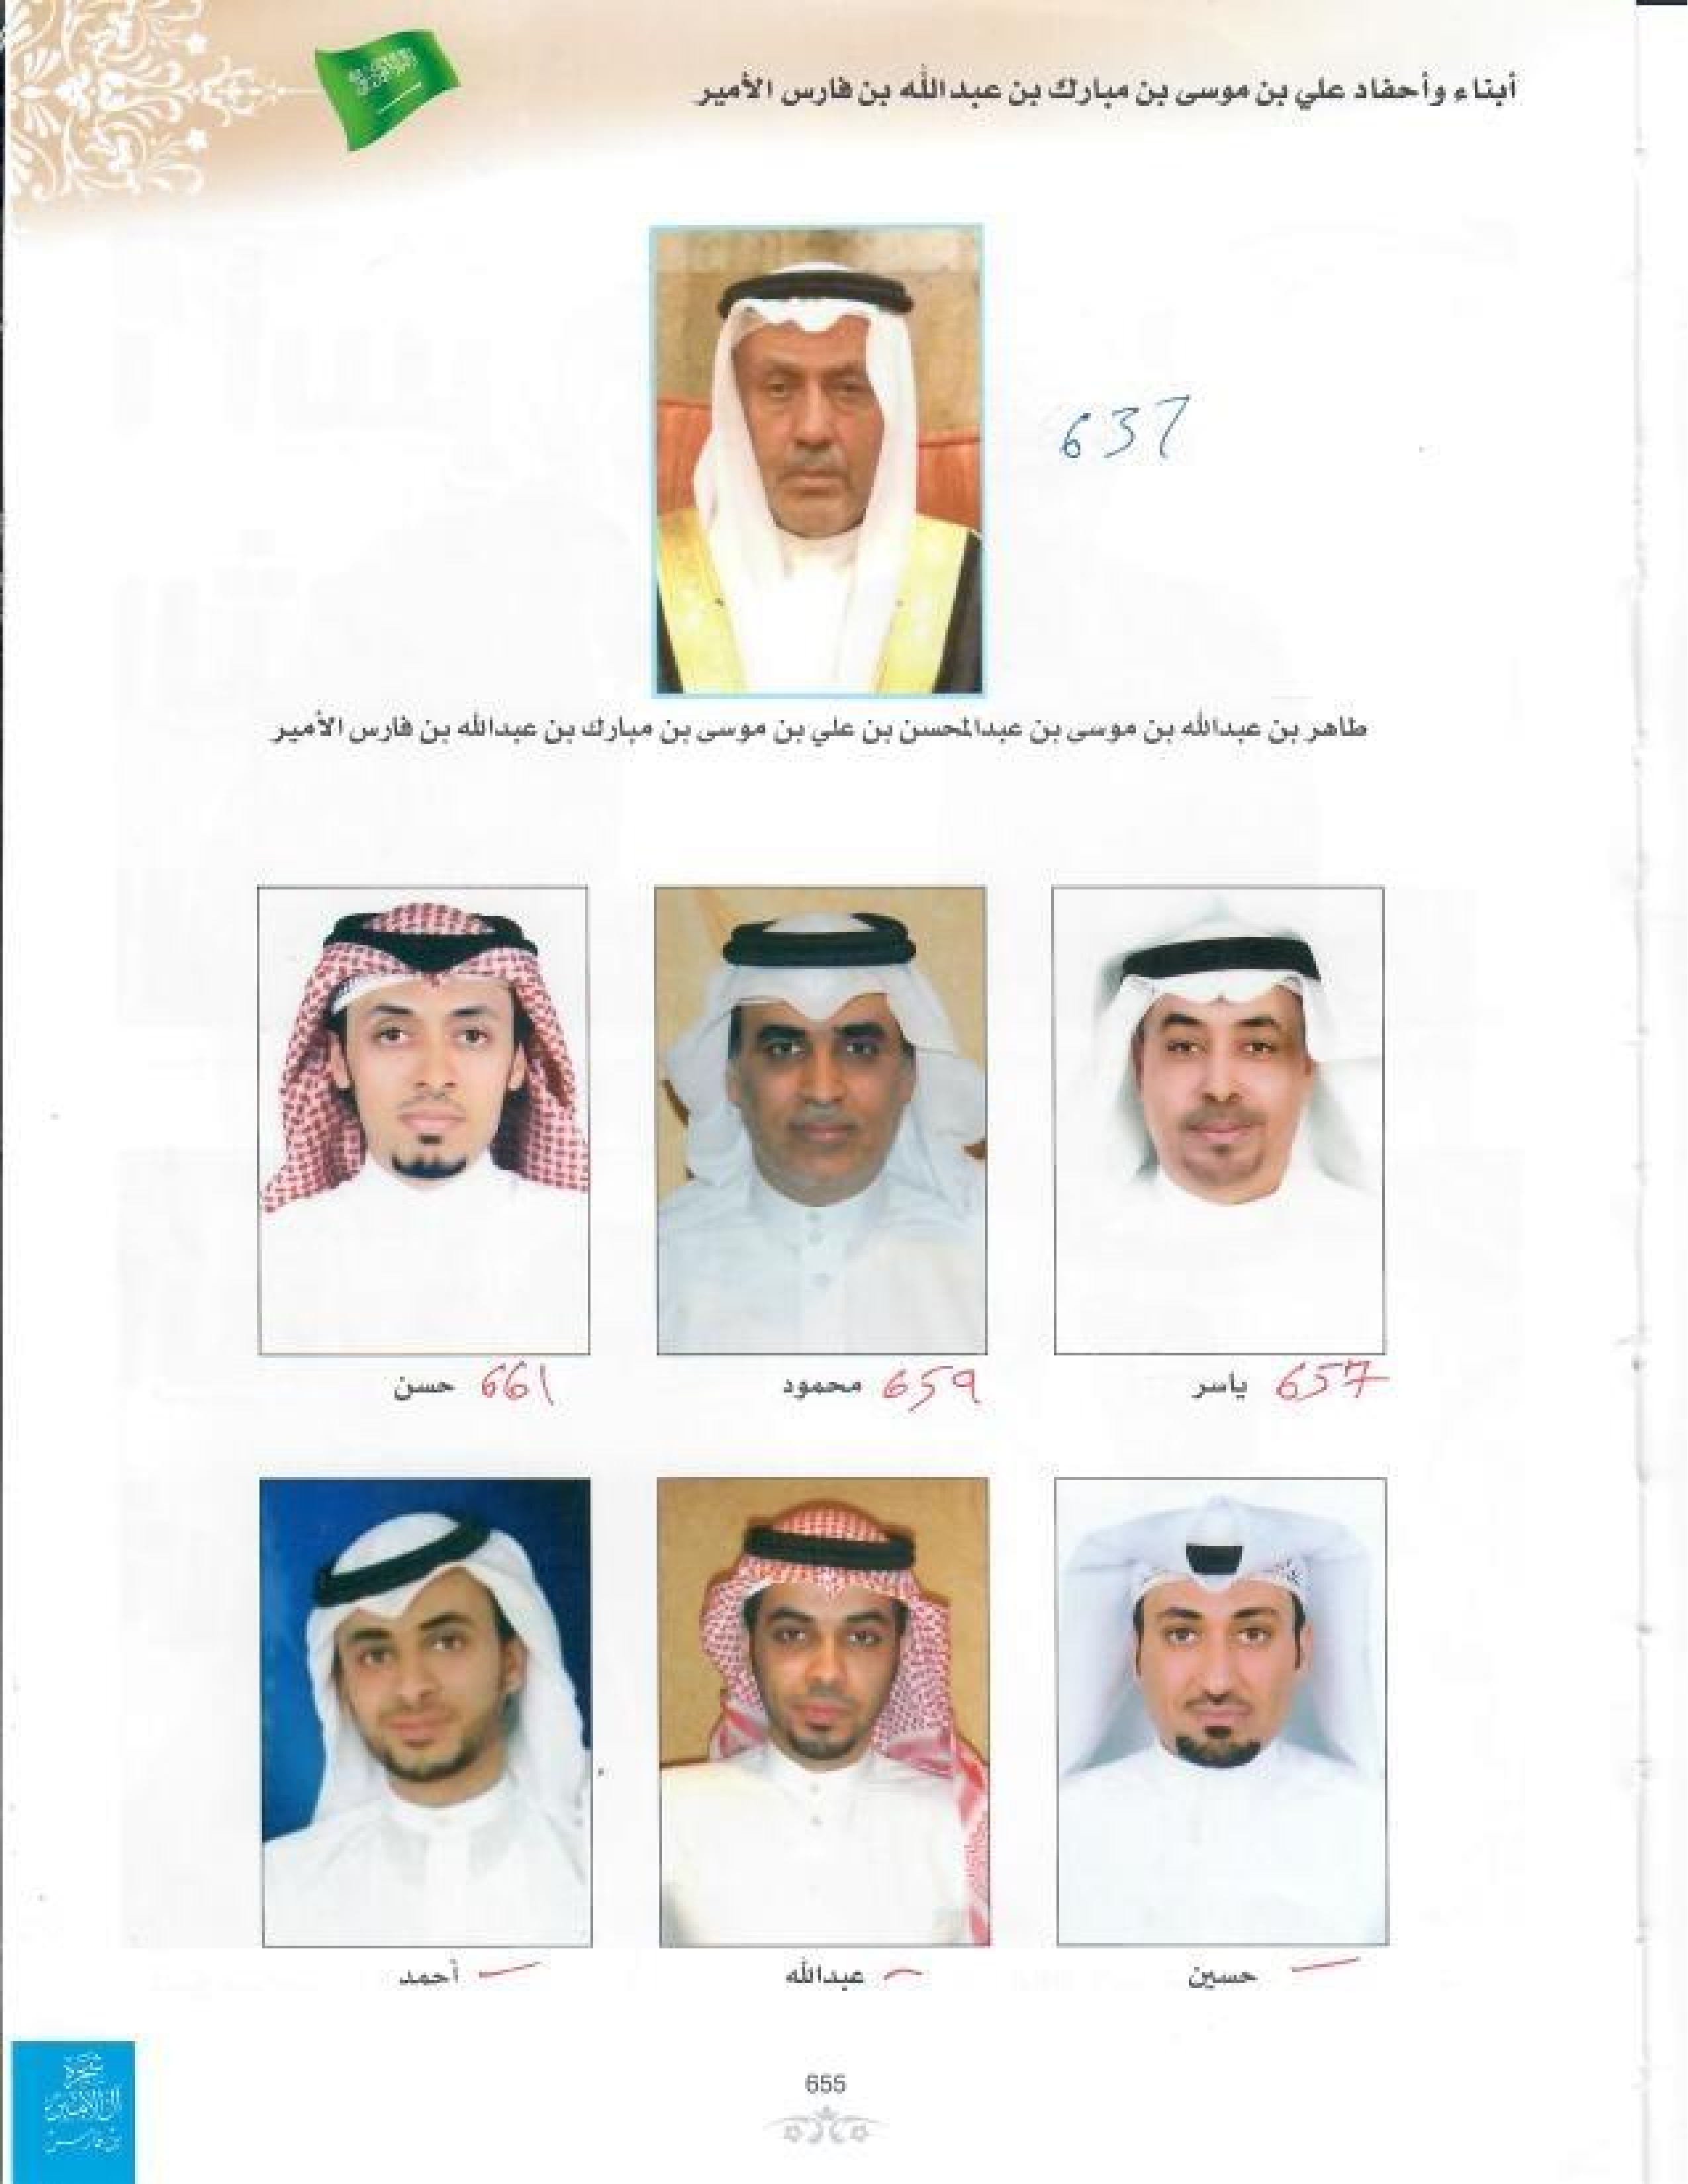 أبناء وأحفاد علي بن موسى بن مبارك بن عبدالله بن فارس الأمير
637
طاهر بن عبدالله بن موسى بن عبدالمحسن بن علي بن موسى بن مبارك بن عبدالله بن فارس الأمير
657 ياسر
659 محمود
661 حسن
حسين
عبدالله
أحمد
شجرة
بن فارس
655